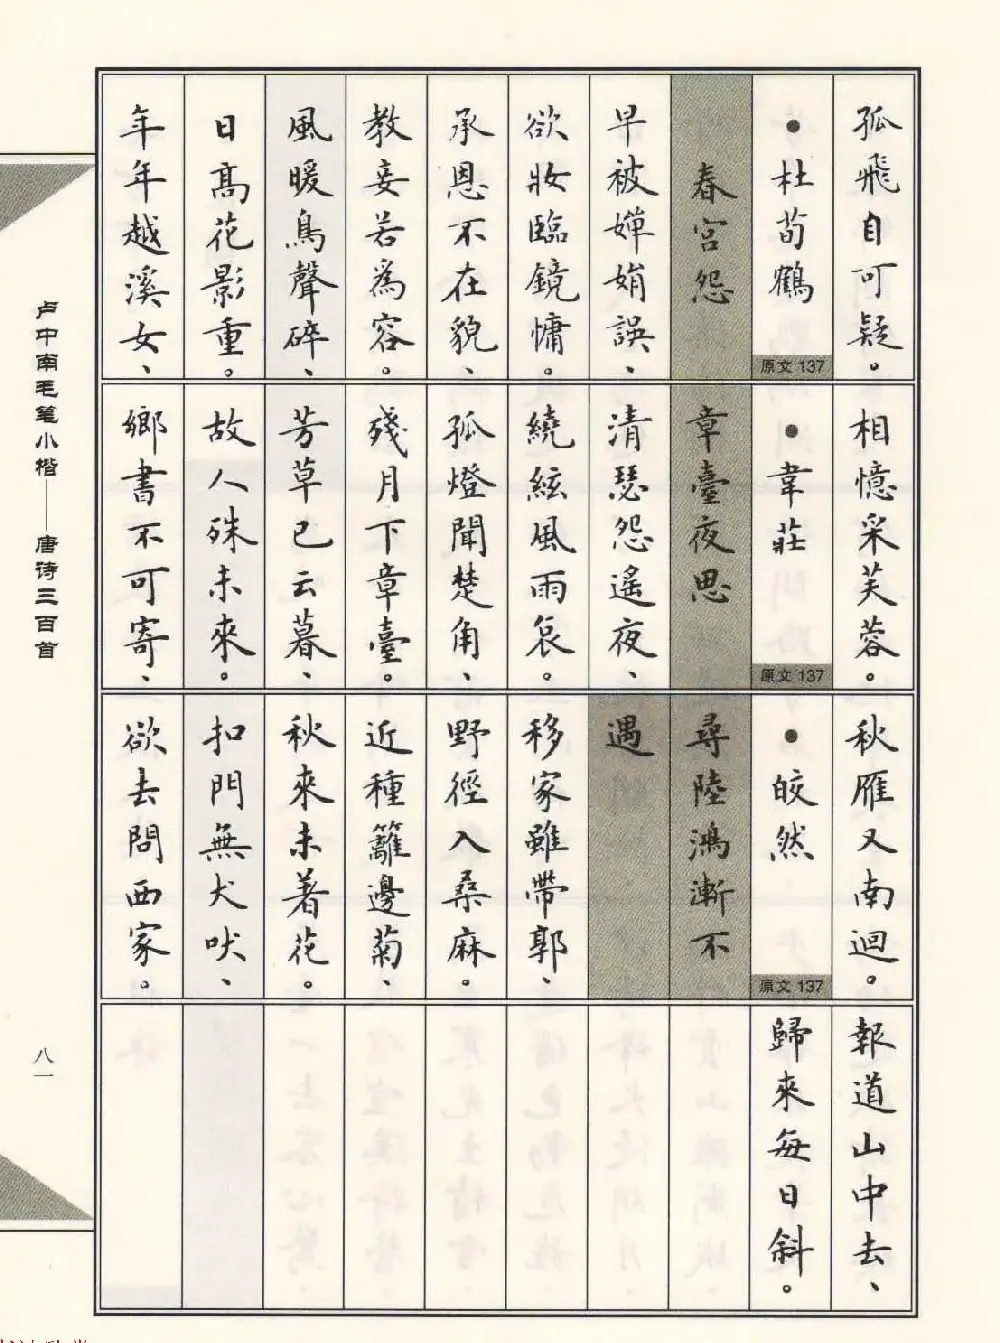 孤飛自可疑。
●杜荀鶴
原文 137
春宮怨
早被嬋娟誤、
欲妝臨鏡慵。
承恩不在貌、
教妾若為容。
風暖鳥聲碎、
日高花影重。
年年越溪女、
相憶采芙蓉。
●韋莊
原文 137
章臺夜思
清瑟怨遙夜、
繞絃風雨哀。
孤燈聞楚角、
殘月下章臺。
芳草已云暮、
故人殊未來。
鄉書不可寄、
秋雁又南迴。
●皎然
原文 137
尋陸鴻漸不
遇
移家雖帶郭、
野徑入桑麻。
近種籬邊菊、
秋來未著花。
扣門無犬吠、
欲去問西家。
報道山中去、
歸來每日斜。
卢中南毛笔小楷——唐诗三百首
八一